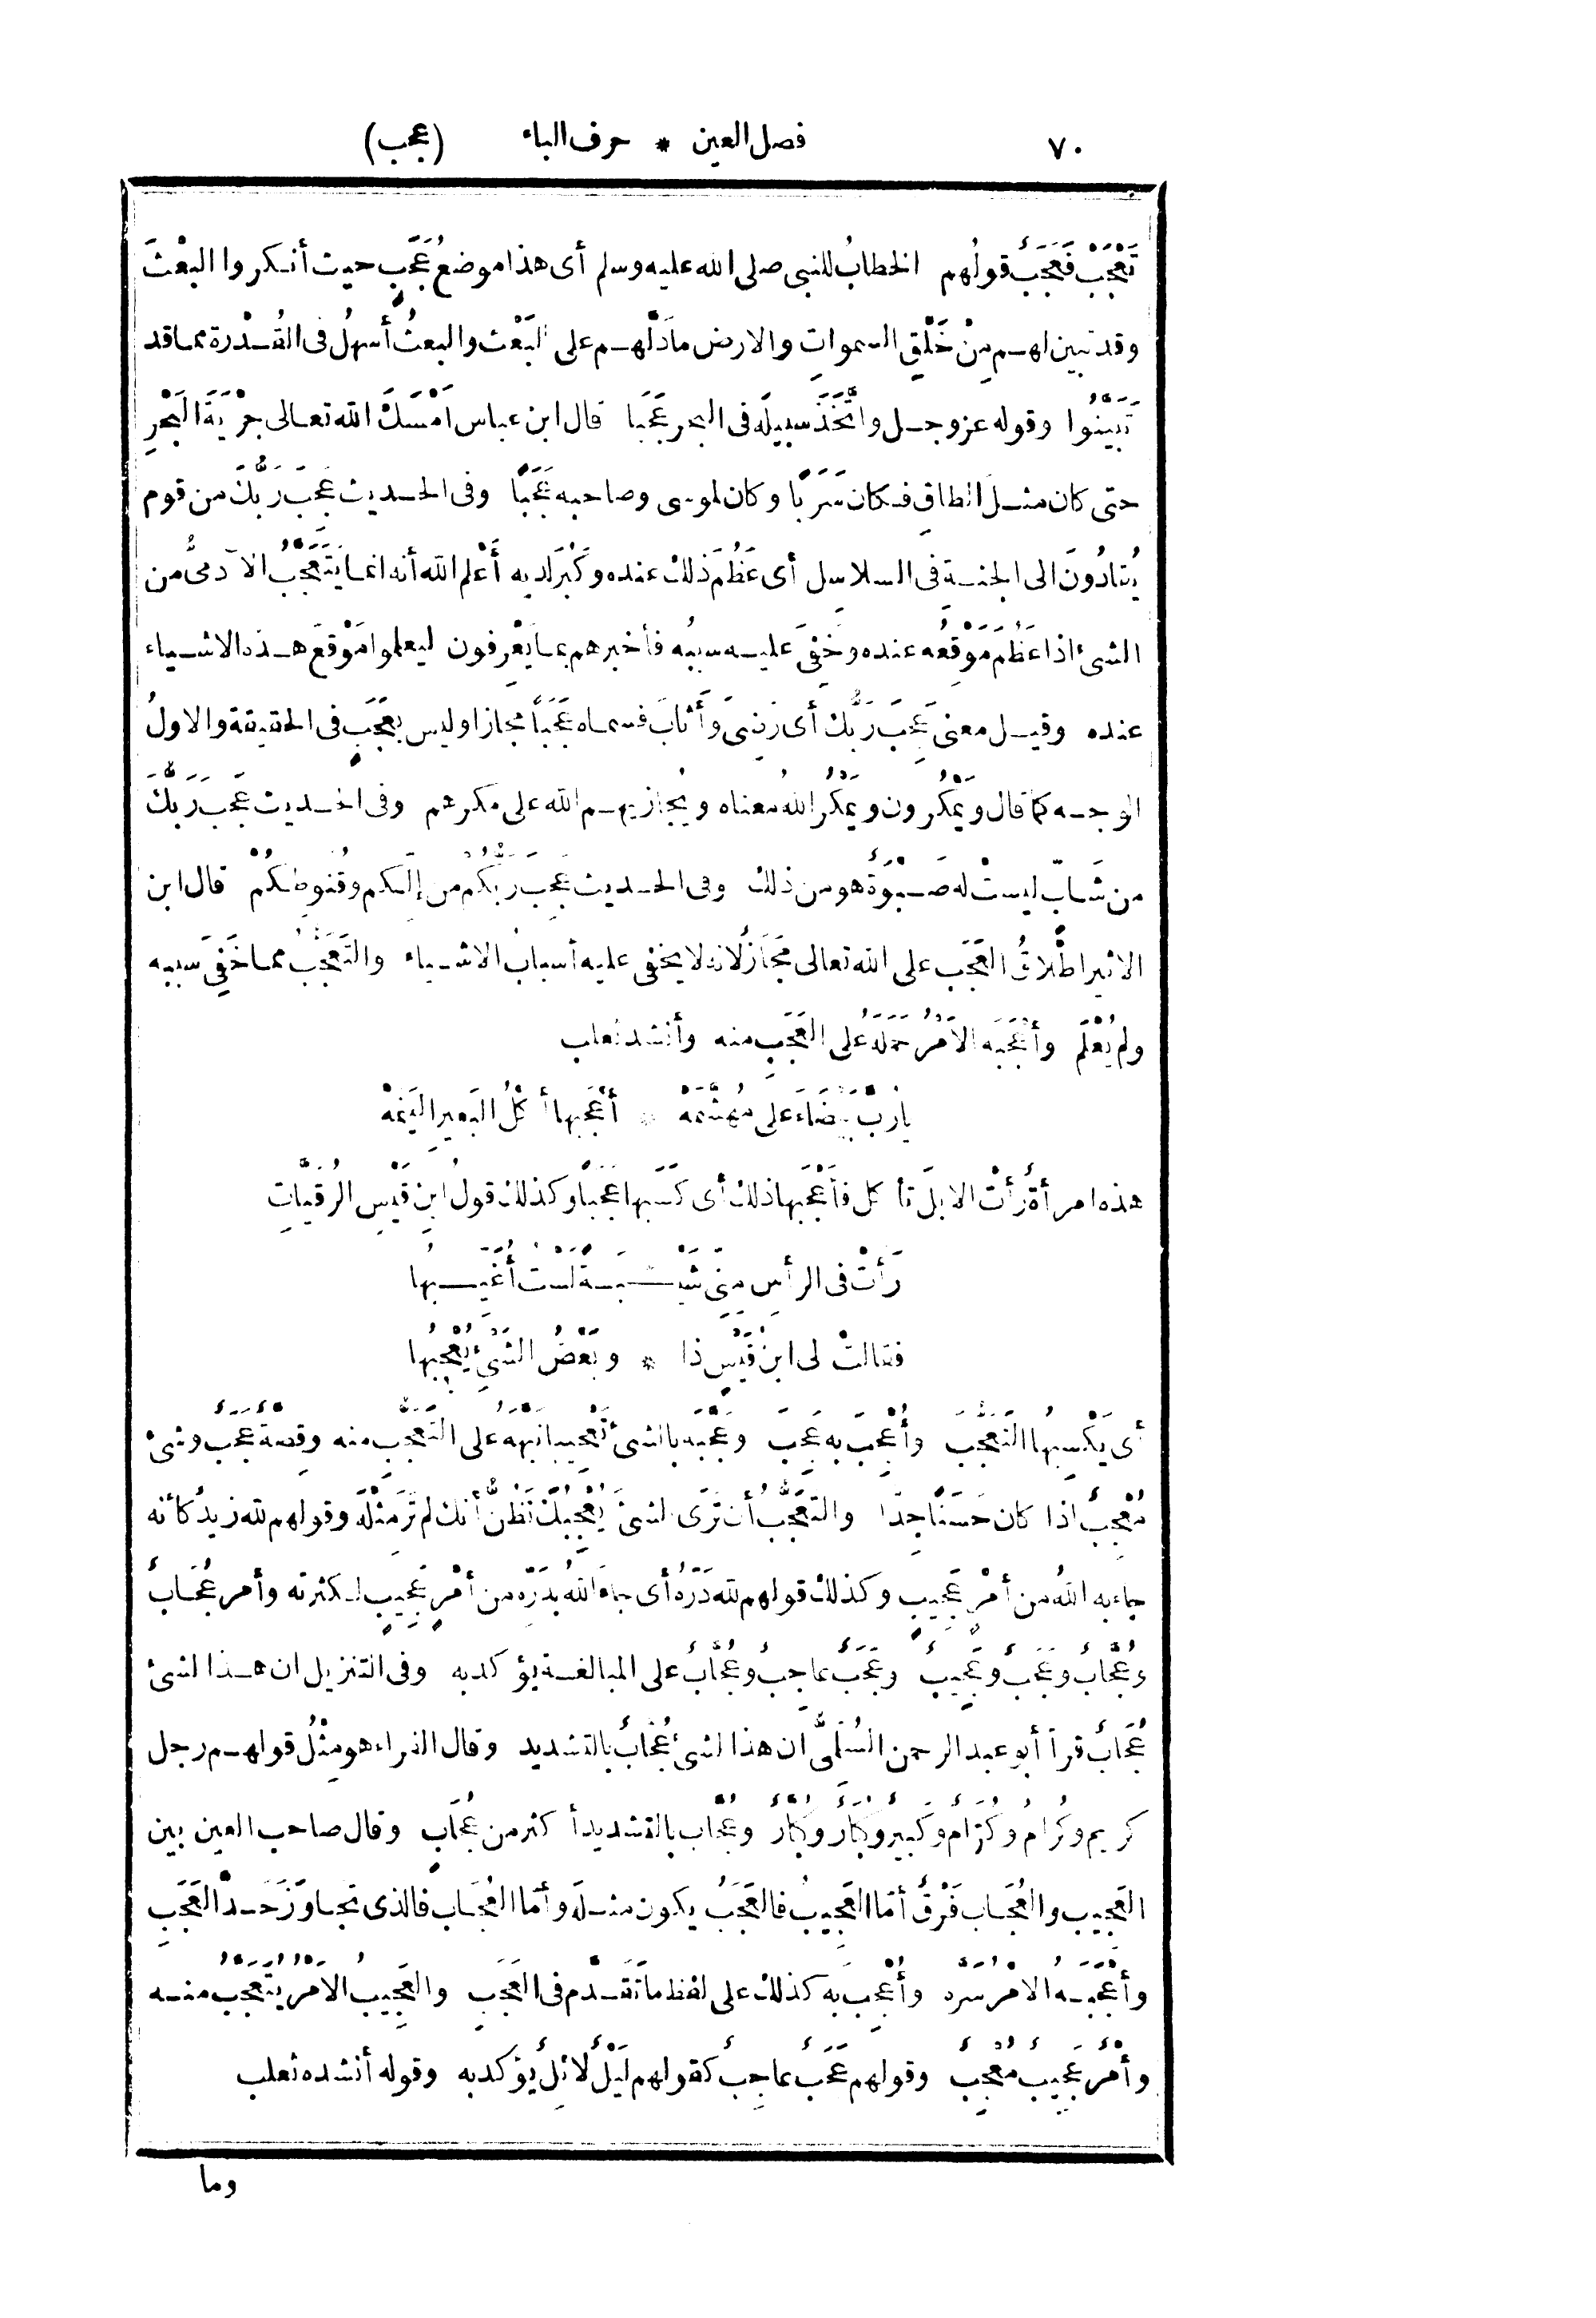 ٧٠ فصل العين * حرف الباء (عجب)
تَعْجَبْ فَعَجَبٌ قولُهم الخطابُ للنبى صلى الله عليه وسلم أى هذا موضعُ عَجَبٍ حيث أنكروا البعْثَ
وقد تبين لهم مِنْ خَلْقِ السمواتِ والارض ما دَلَّهم على البَعْث والبعثُ أسهلُ فى القُدْرة مما قد
تَبَيَّنُوا وقوله عز وجل واتَّخَذَ سبيلَه فى البحر عَجَبا قال ابن عباس أمْسَكَ الله تعالى جِرْيَةَ البَحْرِ
حتى كان مثلَ الطاقِ فكان سَرَبًا وكان لموسى وصاحبه عَجَبًا وفى الحديث عَجِبَ رَبُّكَ من قوم
يُقادُونَ الى الجنة فى السلاسِل أى عَظُمَ ذلك عنده وكَبُرَ لديه أَعْلم الله أنه انما يَتَعَجَّبُ الآدمىُّ من
الشئ اذا عَظُمَ مَوْقِعُه عنده وخَفِىَ عليه سببُه فأخبرهم بما يَعْرِفون ليعلموا مَوْقعَ هذه الاشياء
عنده وقيل معنى عَجِبَ رَبُّكَ أى رَضِىَ وأَثابَ فسماه عَجَباً مجازا وليس بعَجَبٍ فى الحقيقة والاولُ
الوجه كما قال ويَمْكُرون ويَمْكُرُ اللهُ معناه ويُجازيهم الله على مكرهم وفى الحديث عَجِبَ رَبُّكَ
من شَابّ ليستْ له صَبْوَةٌ هو من ذلك وفى الحديث عَجِبَ رَبُّكُم من إلّكم وقُنُوطكُمْ قال ابن
الاثير اطْلاقُ العَجَب على الله تعالى مَجَازٌ لانه لا يخفى عليه أسبابُ الاشياء والتَّعَجُّبُ مما خَفِىَ سببه
ولم يُعْلَم وأَعْجَبَه الأمْرُ حَمَلَه على العَجَبِ منه وأنشد ثعلب
يارُبَّ بَيْضَاءَ على مُهَشَّمَهْ * أَعْجَبها أكْلُ البَعيرِ اليَنَمهْ
هذه امرأةٌ رأتْ الابلَ تأكل فأَعْجَبها ذلك أى كَسَبها عَجَباً وكذلك قولُ ابنِ قَيْسِ الرُّقَيَّاتِ
رَأَتْ فى الرأسِ مِنِّى شَيْبَةً لَسْتُ أُغَيِّبُها
فقالتْ لى ابنُ قَيْسٍ ذا * وبَعْضُ الشَّئِ يُعْجِبُها
أى يَكْسِبُها التَّعَجُّبَ وأُعْجِبَ به عَجِبَ وعَجَّبَه بالشئ تَعْجِيبا نَبَّهَهُ على التَّعَجُّبِ منه وقِصَّةٌ عَجَبٌ وشئ
مُعْجِبٌ اذا كان حَسَنًا جِدًّا والتَّعَجُّبُ أن تَرَى الشئَ يُعْجِبُكَ تَظُنُّ أنك لم تَرَ مِثْلَه وقولهم لله زيدٌ كأنه
جاء به اللهُ من أمْرٍ عَجِيبٍ وكذلك قولهم لله دَرُّهُ أى جاءَ اللهُ بدَرِّه من أمْرٍ عَجِيبٍ لكثرته وأمر عُجَابٌ
وعُجَّابٌ وعَجَبٌ وعَجِيبٌ وعَجَبٌ عاجِبٌ وعُجَّابٌ على المبالغة يؤكد به وفى التنزيل ان هذا لشئ
عُجَابٌ قرأ أبو عبد الرحمن السُّلَمِىُّ ان هذا لشئٌ عُجَّابٌ بالتشديد وقال الفراء هو مِثْلُ قولهم رجل
كريم وكُرامٌ وكُرّامٌ وكَبيرٌ وكُبَارٌ وكُبَّارٌ وعُجَّاب بالتشديد أكثر من عُجَابٍ وقال صاحب العين بين
العَجِيب والعُجَاب فَرْقٌ أمّا العَجِيبُ فالعَجَبُ يكون مثلَه وأمّا العُجَاب فالذى تجاوَزَ حَدَّ العَجَبِ
وأَعْجَبَهُ الأمْرُ سَرَّه وأُعْجِبَ به كذلك على لفظ ما تَقَدَّم فى العَجَبِ والعَجِيبُ الأمْرُ يُتَعَجَّبُ منه
وأمْرٌ عَجِيبٌ مُعْجِبٌ وقولهم عَجَبٌ عاجِبٌ كقولهم لَيْلٌ لائِلٌ يؤكد به وقوله أنشده ثعلب
وما